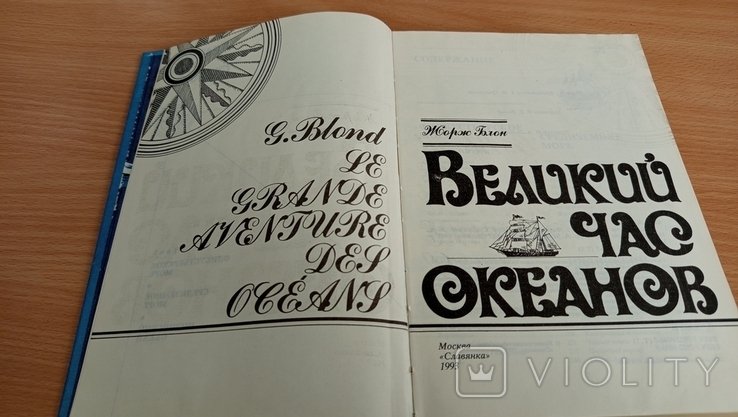 G. Blond
LE
GRANDE
AVENTURE
DES
OCÉANS
Жорж Блон
ВЕЛИКИЙ
ЧАС
ОКЕАНОВ
Москва
«Славянка»
1993
СОДЕРЖАНИЕ
VIOLITY